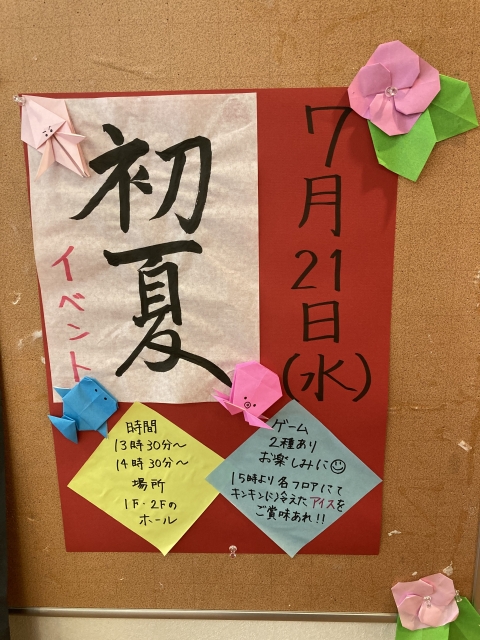 7月21日(水)
初夏
イベント
時間
13時30分〜
14時30分〜
場所
1F・2Fの
ホール
ゲーム
2種あり
お楽しみに
15時より各フロアにて
キンキンに冷えたアイスを
ご賞味あれ!!